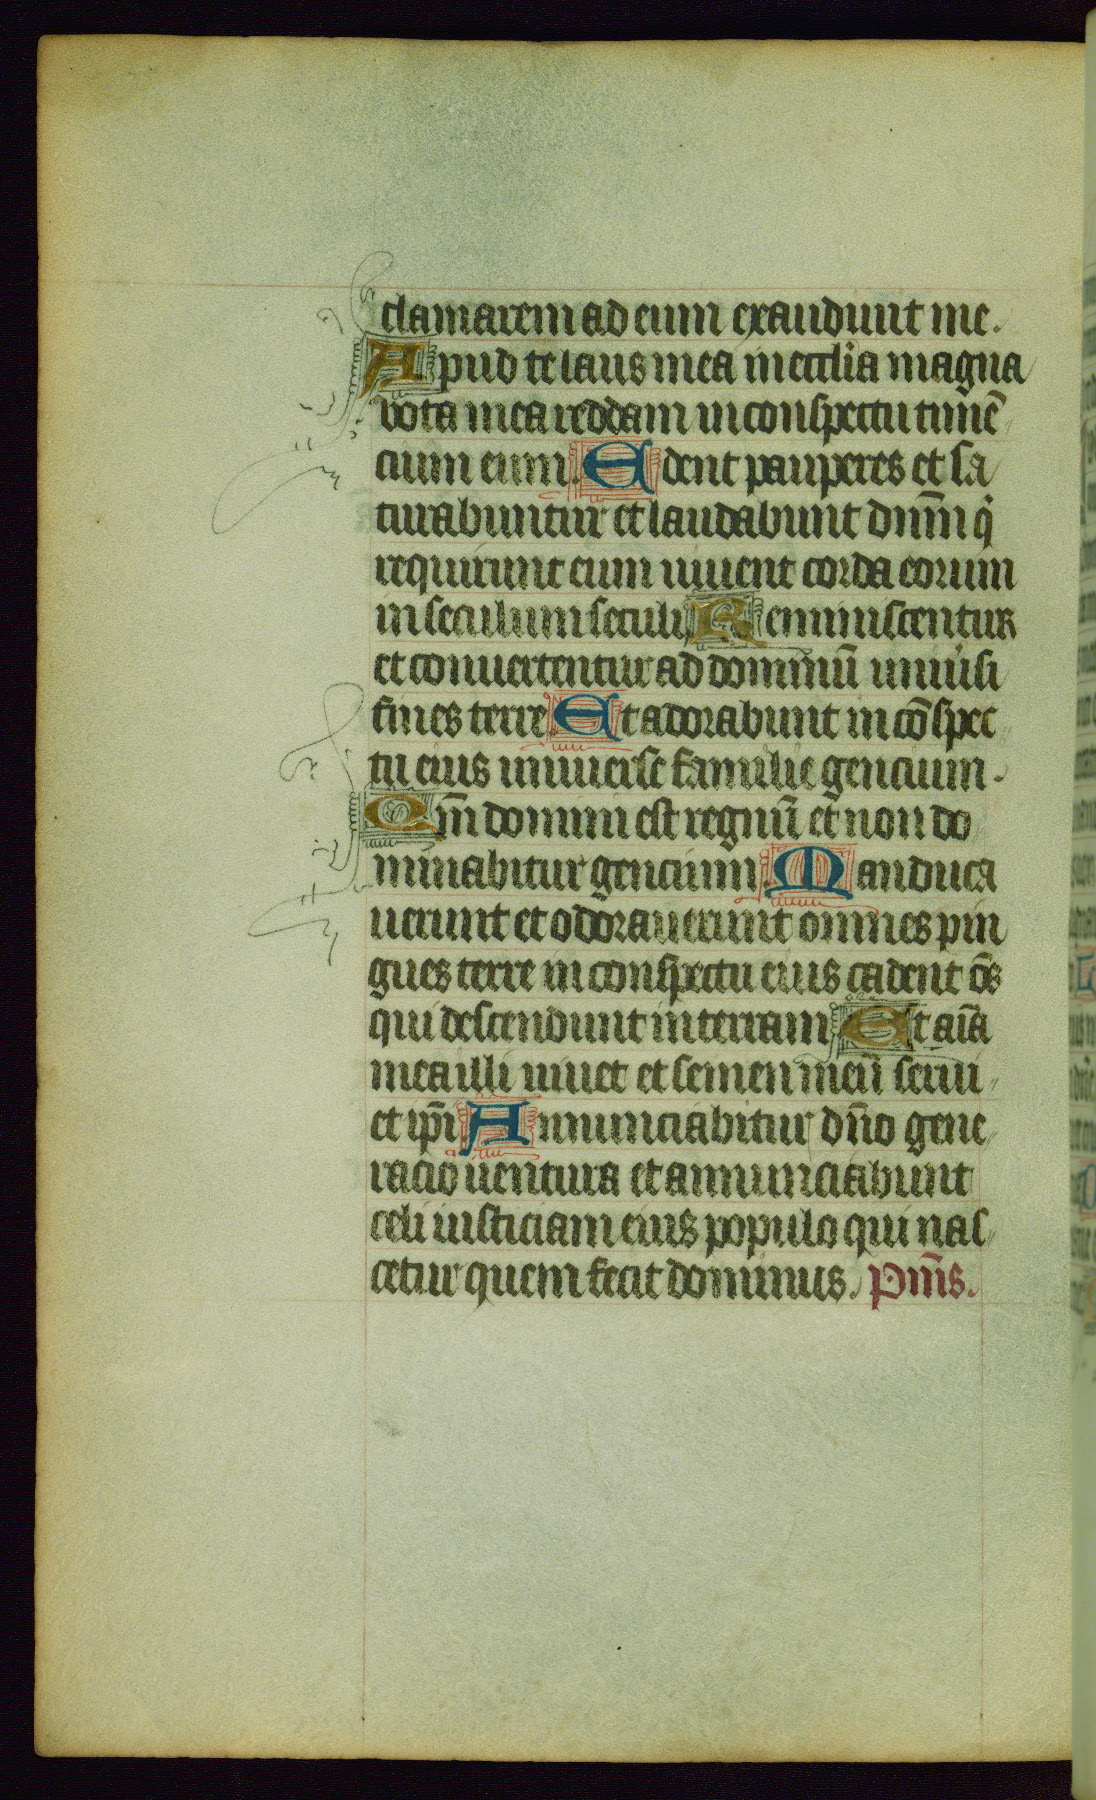 clamarem ad eum exaudiuit me.
Apud te laus mea in eccl̄ia magna
vota mea reddam in conspectu timē
cium eum. Edent pauperes et sa
turabuntur et laudabunt dnm̄ qͥ
requirunt eum uiuent corda eorum
in seculum seculi. Reminiscentur
et conuertentur ad dominū uniu̓si
fines terre. Et adorabunt in cōspec
tu eius uniuerse familie gencium.
Qm̄ domini est regnū et non do
minabitur gencium. Manduca
uerunt et odorauerunt omnes pin
gues terre in conspectu eius cadent ōs
qui descendunt in terram. Et aīa
mea illi uiuet et semen meū serui
et ip̄i. Annunciabitur dn̄o gene
racio uentura et annunciabunt
celi iusticiam eius populo qui nas
cetur quem fecit dominus. Pm̄s.